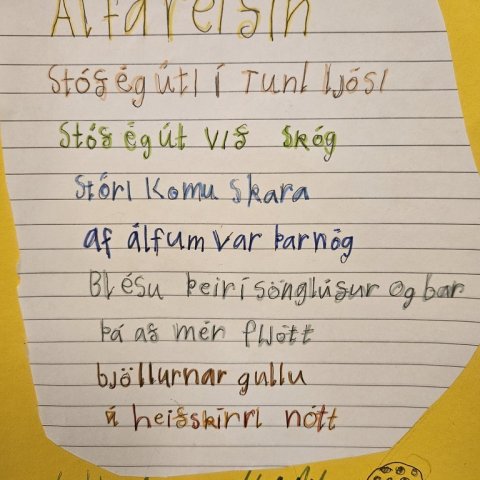 Álfareiðin
Stóð ég úti í Tunl ljósi
Stóð ég út við skóg
Stóri komu skara
af álfum var þarnóg
Blésu þeir í sönglúður og bar
þá að mér fljótt
bjöllurnar gullu
á heiðskírri nótt